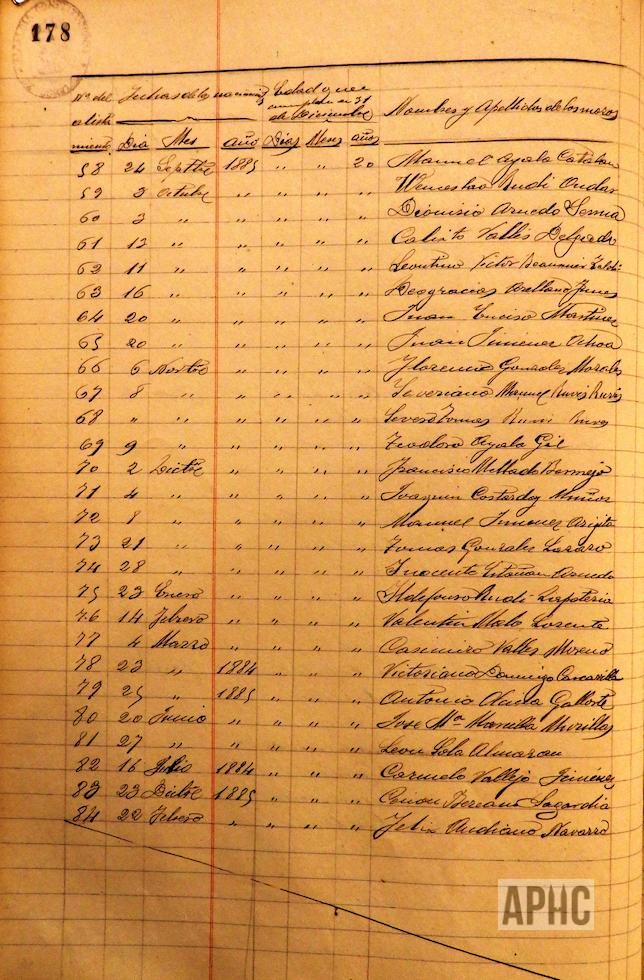 178
Nº del alista miento
Fechas de los nacimtos
Edad que cumplen en 31 de Diciembre
Nombres y Apellidos de los mozos
Dia Mes año Dias Meses años
58 24 Septbre 1885 " " 20 Manuel Ayala Catalan
59 3 Octubre " " " " Wenceslao Rudi
60 3 " " " " " Dionisio Arnedo Serna
61 13 " " " " " Calixto Vallés Delgado
62 11 " " " " " Victor Beaumier
63 16 " " " " " Deogracias Arellano
64 20 " " " " " Juan Enciso Martinez
65 20 " " " " " Juan Jimenez Ochoa
66 6 Novbre " " " " Florencio Gonzalez Morales
67 8 " " " " " Severiano Manuel
68 " " " " " " Severo Tomas
69 9 " " " " " Teodoro Ayala Gil
70 2 Dicbre " " " " Francisco Mellado Bermejo
71 4 " " " " " Joaquin Muñoz
72 8 " " " " " Manuel Jimenez
73 21 " " " " " Tomas Gonzalez Lazaro
74 28 " " " " " Inocente Arnedo
75 23 Enero " " " " Ildefonso Rudi
76 14 Febrero " " " " Valentin Malo Lorente
77 4 Marzo " " " " Casimiro Valles Moreno
78 23 " 1884 " " " Victoriano Domingo
79 25 " 1885 " " " Antonio
80 20 Junio " " " " Jose Mª Murillas
81 27 " " " " " Leon Sola Almazan
82 16 Julio 1884 " " " Carmelo Vallejo Jiménez
83 23 Dicbre 1885 " " " Lagardia
84 22 Febrero " " " " Felix Andiano Navarro
APHC